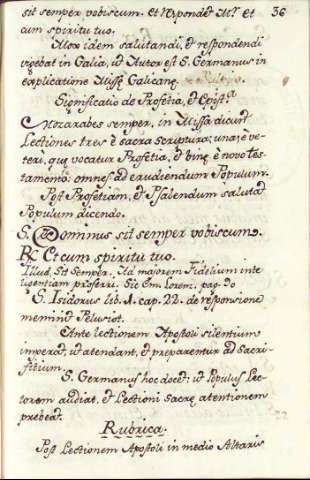 sit semper vobiscum. et Respondet Mr. et 36
cum spiritu tuo.
Mox idem salutandi, et respondendi
vigebat in Galia, ut Autor est S. Germanus in
explicatione Missę Galicanę.
Significatio de Profetia, et Epist.a
Mozarabes semper, in Missa dicunt
Lectiones tres è sacra scriptura: una; è ve-
teri, quę vocatur Profetia, et binę è novo tes-
tamento: omnes ad erudiendum Populum.
Post Profetiam, et Psalendum salutat
Populum dicendo.
S. Dominus sit semper vobiscum.
R. Et cum spiritu tuo.
Illud, Sit Semper. Ita majorem Fidelium inte
ligentiam proferri. Sic Em. Lorenz. pag. 90
S. Isidorus lib. 1. cap. 22. de responsione
meminit Pelusiot.
Ante lectionem Apostoli silentium
imperat, ut atendant, et preparentur ad Sacri-
fitium.
S. Germanus hoc docet: ut Populus Lec-
torem audiat, et Lectioni Sacrę atentionem
prebeat.
Rubrica.
Post Lectionem Apostoli in medio Altaris